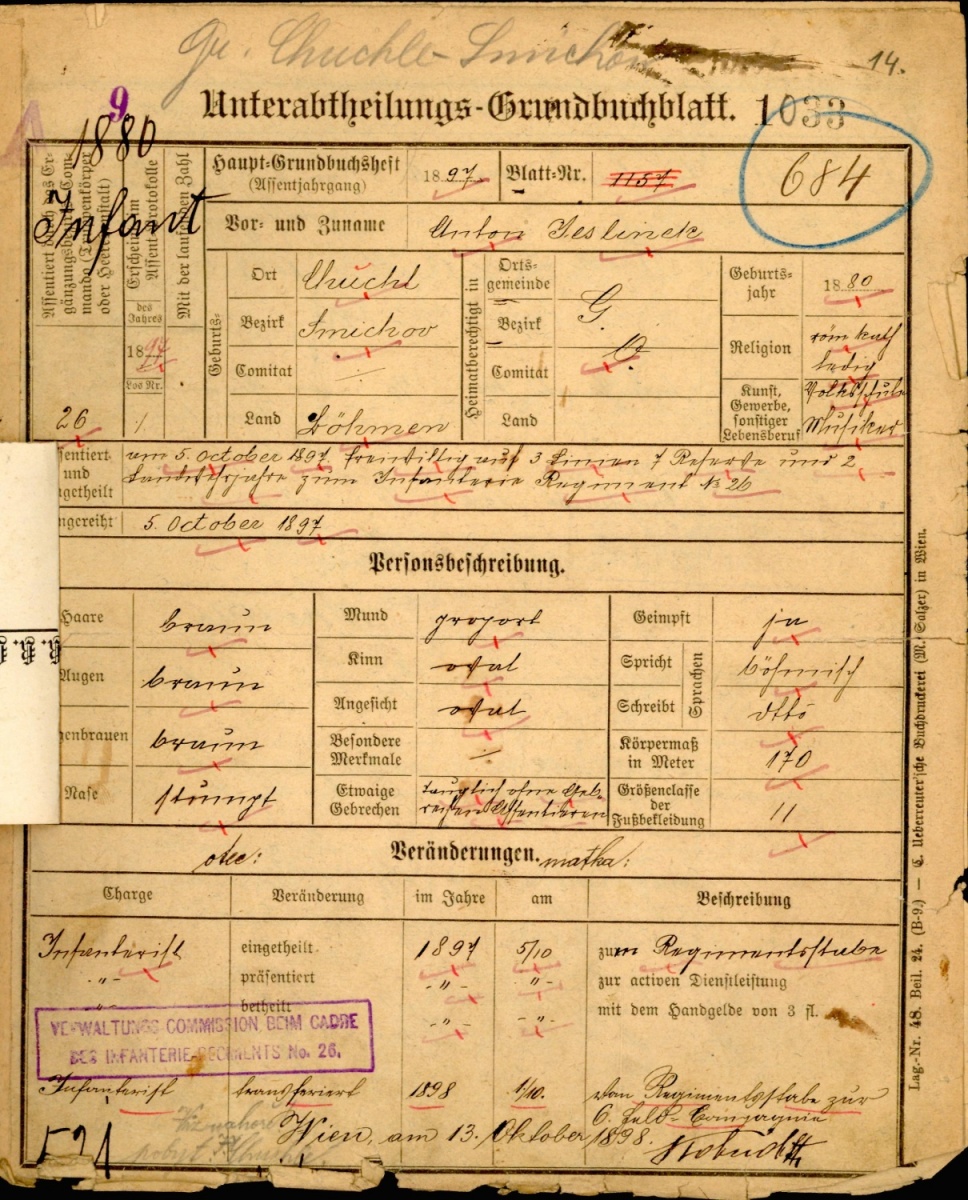 Gr. Chuchle - Smichow
14.
9
Unterabtheilungs-Grundbuchblatt. 1033
1880
684
Infant
Assentiert
Erscheint im Assentprotokolle
des Jahres
18 97
Los Nr.
Mit der laufenden Zahl
26
Haupt-Grundbuchsheft
(Assentjahrgang)
1897.
Blatt-Nr.
1157
Vor- und Zuname
Anton Jeslinek
Geburts-
Ort
Chuchl
Bezirk
Smichov
Comitat
Land
Böhmen
Heimatberechtigt in
Orts-
gemeinde
G.
Bezirk
O.
Comitat
Land
Geburts-
jahr
1880
Religion
röm kath
ledig
Kunst,
Gewerbe,
sonstiger
Lebensberuf
Volksschule
Musiker
vom 5. October 1897. freiwillig auf 3 Linien 7 Reserve und 2
Landwehrjahre zum Infanterie Regiment No 26
und
5. October 1897
Personsbeschreibung.
Haare
braun
Mund
proport
Geimpft
ja
Augen
braun
Kinn
oval
Spricht
Sprachen
böhmisch
Angesicht
oval
Schreibt
dtto
genbrauen
braun
Besondere
Merkmale
Körpermaß
in Meter
170
Nase
stumpf
Etwaige
Gebrechen
tauglich ohne Geb-
rechen Assentieren
Größenclasse
der
Fußbekleidung
11
otec:
Veränderungen.
matka:
Charge
Veränderung
im Jahre
am
Beschreibung
Infanterist
eingetheilt
1897
5/10
zum Regimentsstabe
-"-
präsentiert
-"-
-"-
zur activen Dienstleistung
-"-
betheilt
-"-
-"-
mit dem Handgelde von 3 fl.
VERWALTUNGS-COMMISSION BEIM CADRE
DES INFANTERIE-REGIMENTS No. 26.
Infanterist
transferiert
1898
1/10.
vom Regimentsstabe zur
6. Feld-Compagnie
Wien, am 13. Oktober 1898.
521
Lag.-Nr. 48. Beil. 24. (B-9.) — C. Ueberreuter'sche Buchdruckerei (M. Salzer) in Wien.